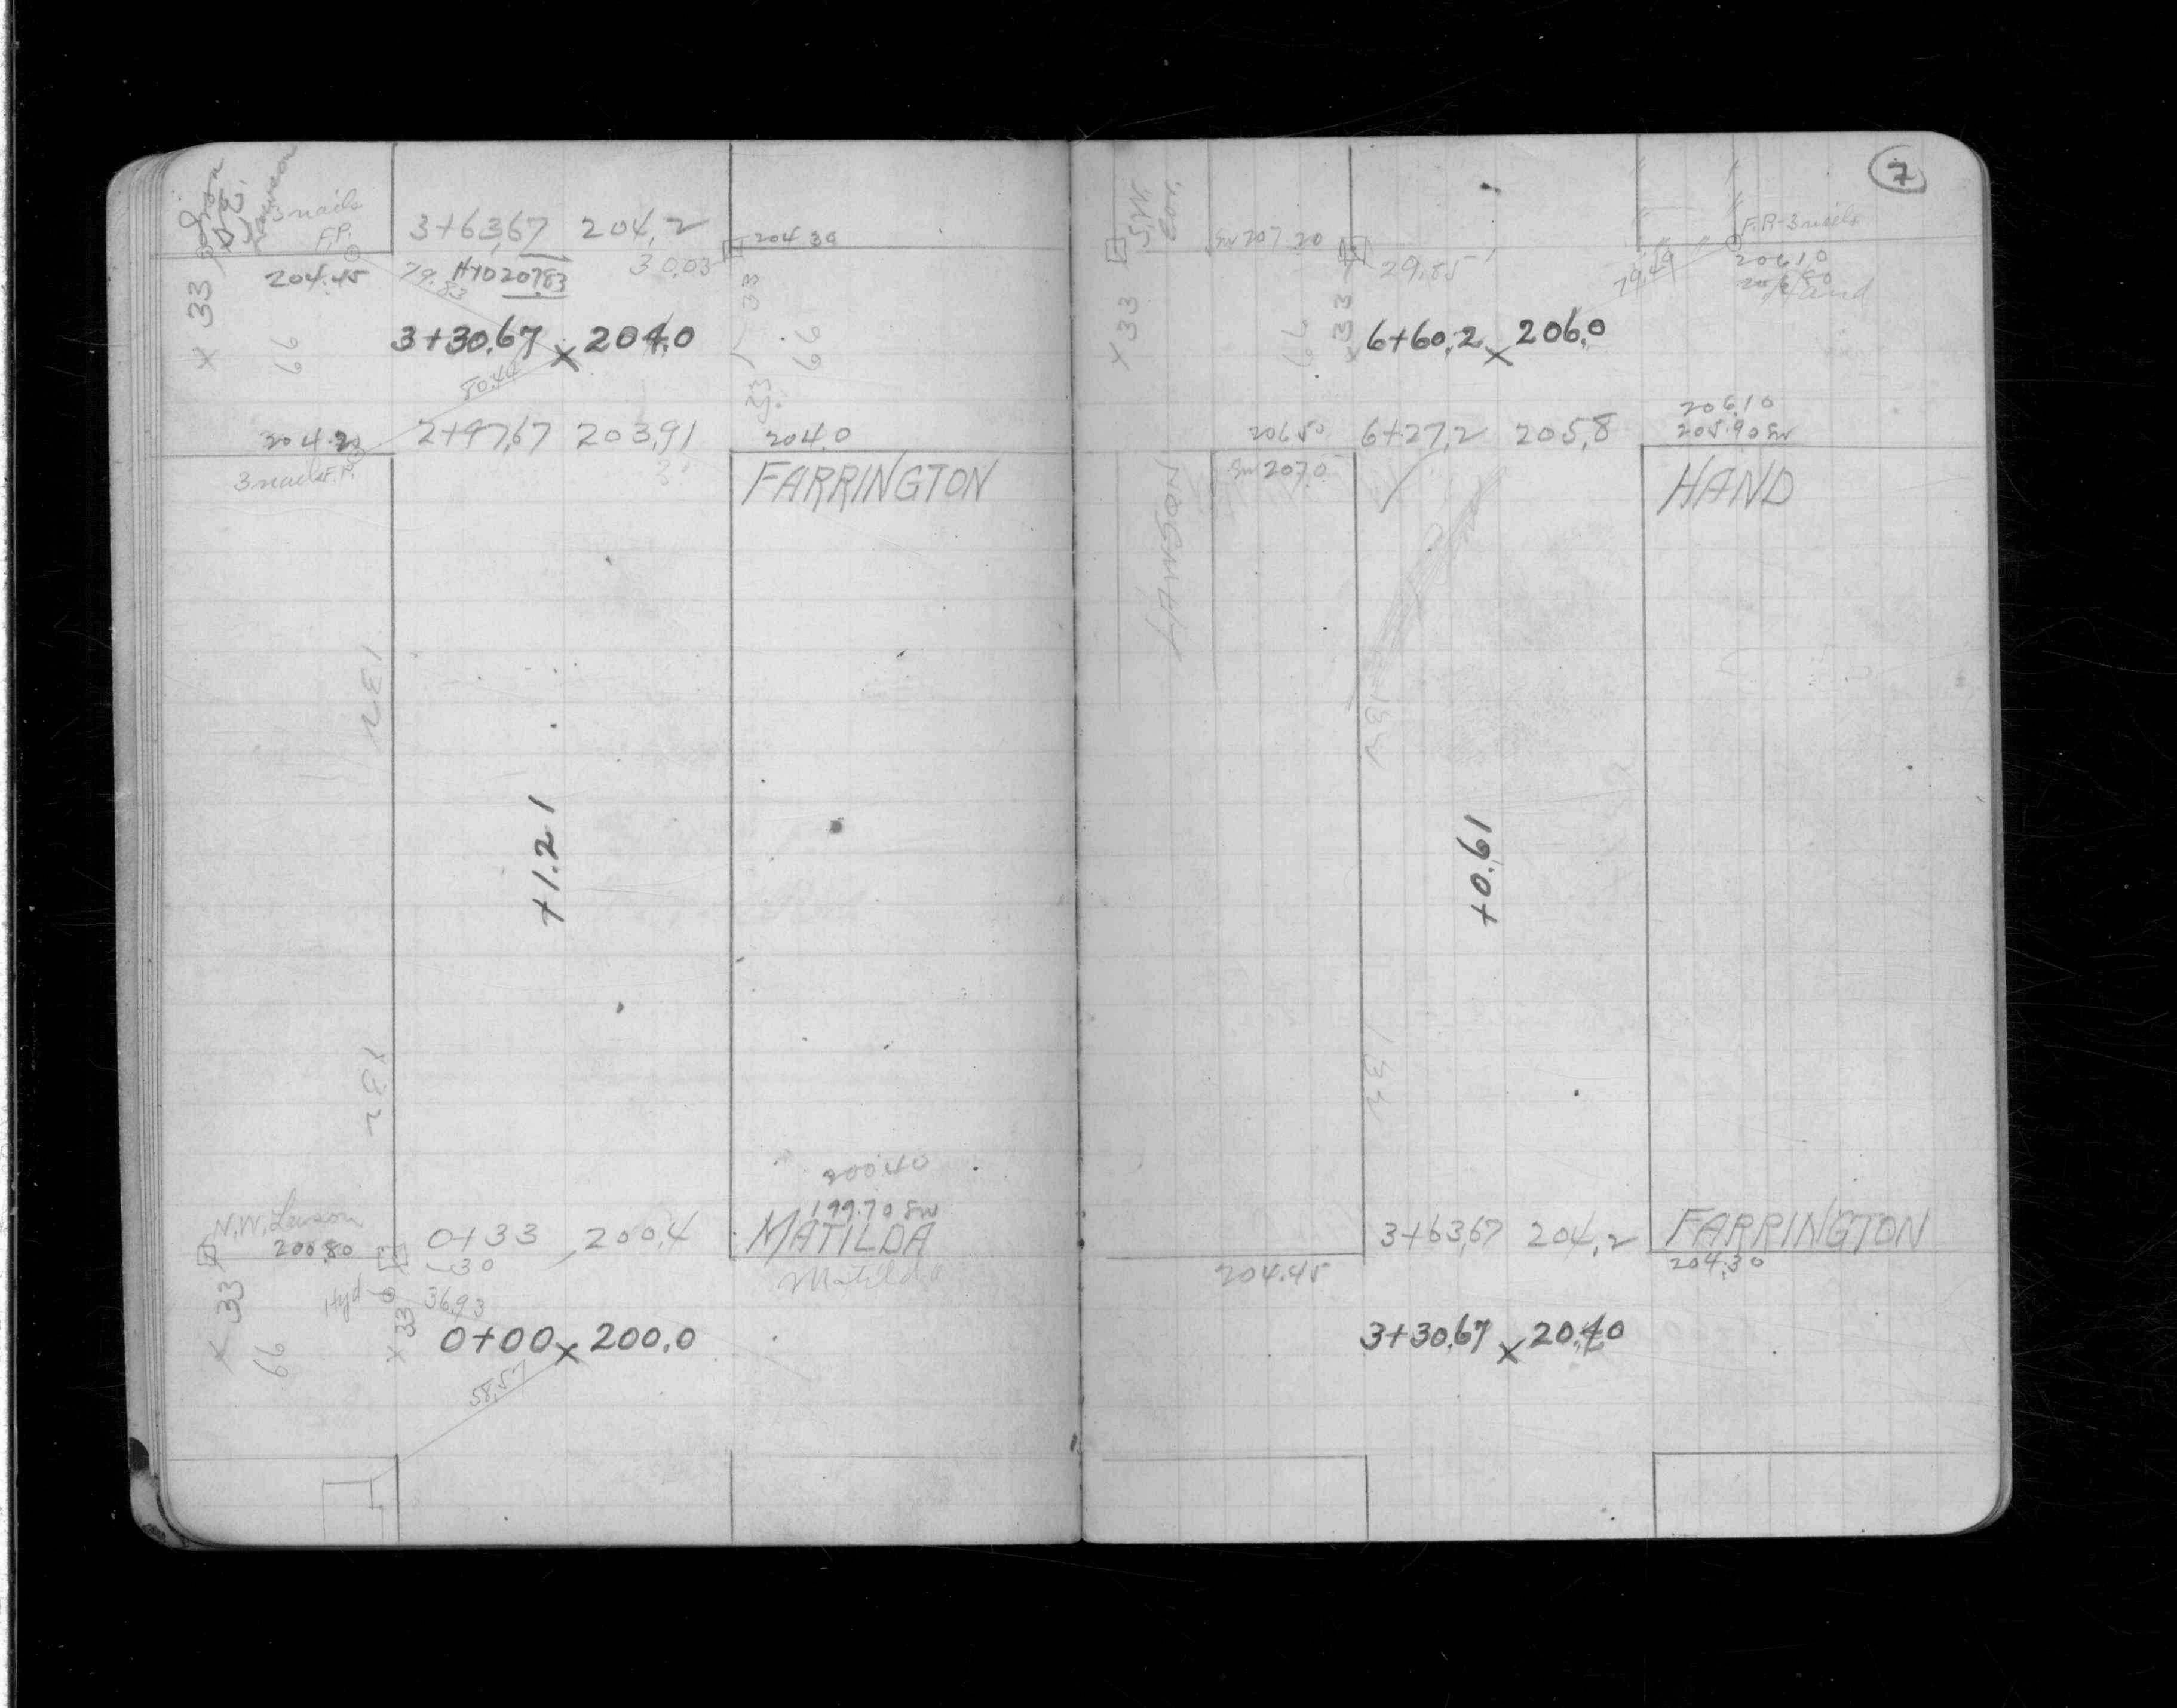 3 nails
F.P.
3+63.67 204.2
204.30
204.45
79.83
HYD 207.83
30.03
33
33
66
3+30.67 x 204.0
66
80.44
33
204.20
2+97.67 203.91
204.0
3 nails F.P.
FARRINGTON
132
+1.21
132
200.40
199.70 SW
N.W. Lawson
200.80
0+33 200.4
MATILDA
30
Matilda
33
Hyd
36.93
33
66
0+00 x 200.0
58.57
7
S.W.
Cor.
SW 207.20
F.P.-3 nails
29.85
79.49
206.10
Hand
x33
66
x33
6+60.2 x 206.0
206.10
206.50
6+27.2 205.8
205.90 SW
SW 207.0
HAND
HAWSON
132
+0.61
132
3+63.67 204.2
FARRINGTON
204.45
204.30
3+30.67 x 204.0